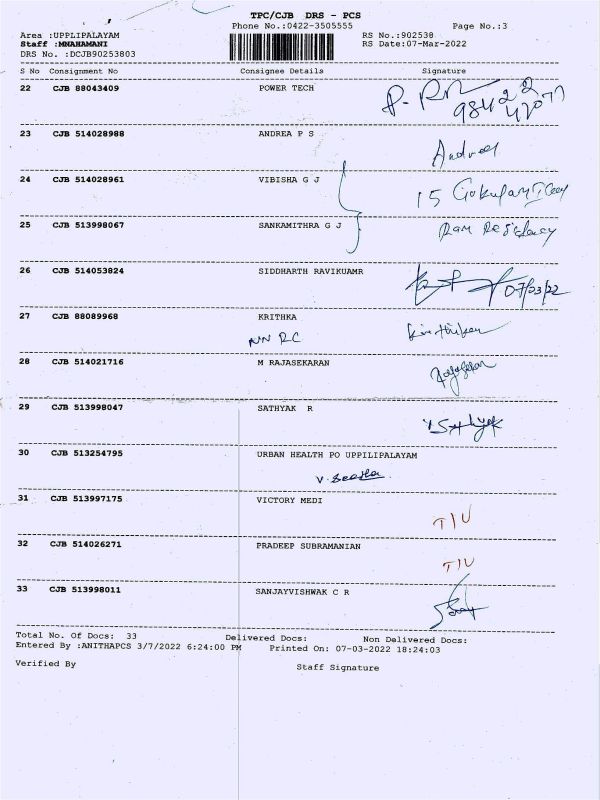 TPC/CJB DRS - PCS
Phone No.:0422-3505555 Page No.:3
Area :UPPLIPALAYAM RS No.:902538
Staff :MNAHAMANI RS Date:07-Mar-2022
DRS No. :DCJB90253803
S No Consignment No Consignee Details Signature
22 CJB 88043409 POWER TECH
98422
42077
23 CJB 514028988 ANDREA P S
Andrea
24 CJB 514028961 VIBISHA G J
15 Gokulam
25 CJB 513998067 SANKAMITHRA G J Ram Residency
26 CJB 514053824 SIDDHARTH RAVIKUAMR
07/03/22
27 CJB 88089968 KRITHKA
NN RC
28 CJB 514021716 M RAJASEKARAN
29 CJB 513998047 SATHYAK R
30 CJB 513254795 URBAN HEALPH PO UPPILIPALAYAM
31 CJB 513997175 VICTORY MEDI
T/U
32 CJB 514026271 PRADEEP SUBRAMANIAN
T/U
33 CJB 513998011 SANJAYVISHWAK C R
Total No. Of Docs: 33 Delivered Docs: Non Delivered Docs:
Entered By :ANITHAPCS 3/7/2022 6:24:00 PM Printed On: 07-03-2022 18:24:03
Verified By Staff Signature